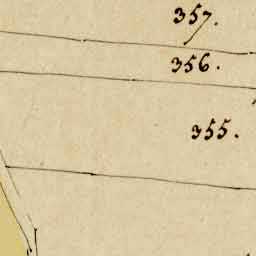 357.
356.
355.